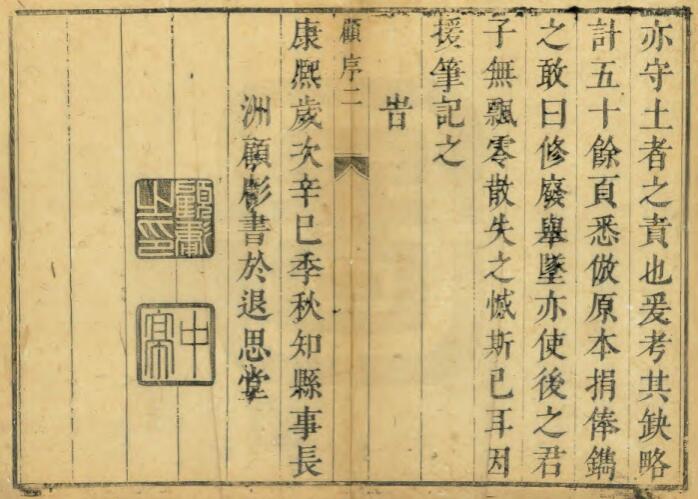 亦守土者之責也爰考其缺略
計五十餘頁悉倣原本捐俸鐫
之敢曰修廢舉墜亦使後之君
子無飄零散失之憾斯已耳因
援筆記之
旹
顧序二
康熙歲次辛巳季秋知縣事長
洲顧彪書於退思堂
顧彪之印
中